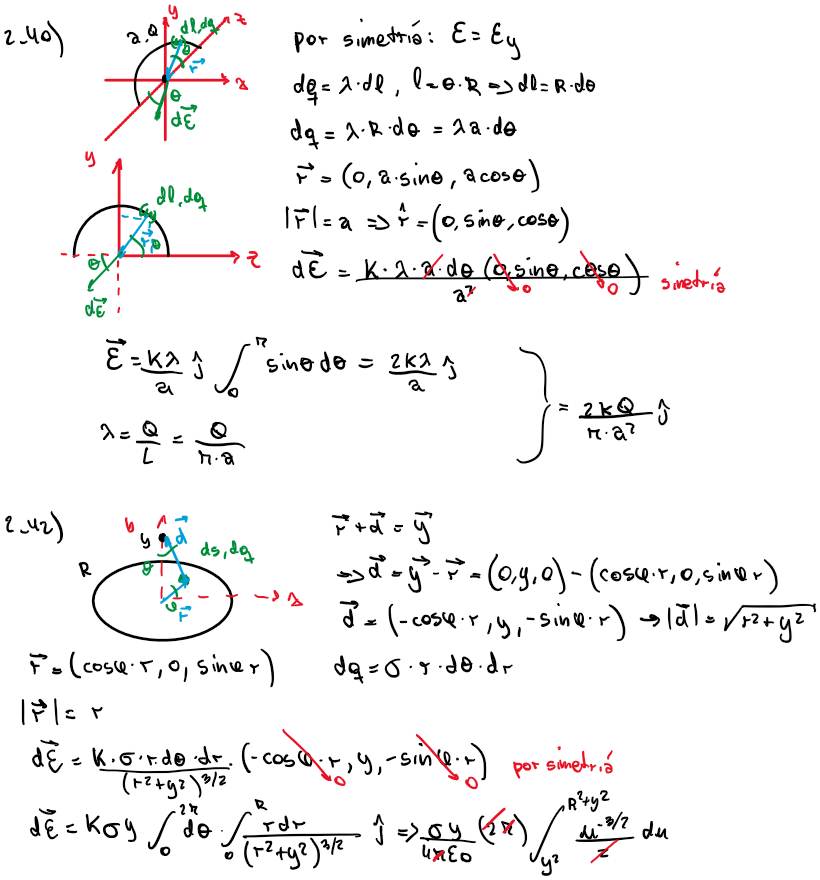 2.40)
y
z
x
a, Q
dl, dq
θ
r⃗
θ
dℰ⃗
por simetría: ℰ = ℰy
dq = λ·dl, l = θ·R => dl = R·dθ
dq = λ·R·dθ = λa·dθ
r⃗ = (0, a·sinθ, a cosθ)
|r⃗| = a => r̂ = (0, sinθ, cosθ)
dℰ⃗ = K·λ·a·dθ (0, sinθ, cosθ) / a² 0 0 simetría
y
z
dl, dq
r⃗
θ
θ
dℰ⃗
ℰ⃗ = Kλ/a ĵ ∫₀^π sinθ dθ = 2Kλ/a ĵ
λ = Q/L = Q/(π·a)
} = 2KQ/(π·a²) ĵ
2.42)
b
y
d⃗
ds, dq
R
φ
r⃗
x
r⃗ + d⃗ = y⃗
=> d⃗ = y⃗ - r⃗ = (0, y, 0) - (cosφ·r, 0, sinφ r)
d⃗ = (-cosφ·r, y, -sinφ·r) → |d⃗| = √(r² + y²)
r⃗ = (cosφ·r, 0, sinφ r)
dq = σ·r·dθ·dr
|r⃗| = r
dℰ⃗ = K·σ·r·dθ·dr / (r² + y²)^3/2 · (-cosφ·r, y, -sinφ·r) 0 0 por simetría
dℰ⃗ = Kσy ∫₀^2π dθ · ∫₀^R r dr / (r² + y²)^3/2 ĵ => σy/(4πε0) (2π) ∫_y²^R²+y² u^-3/2 / 2 du